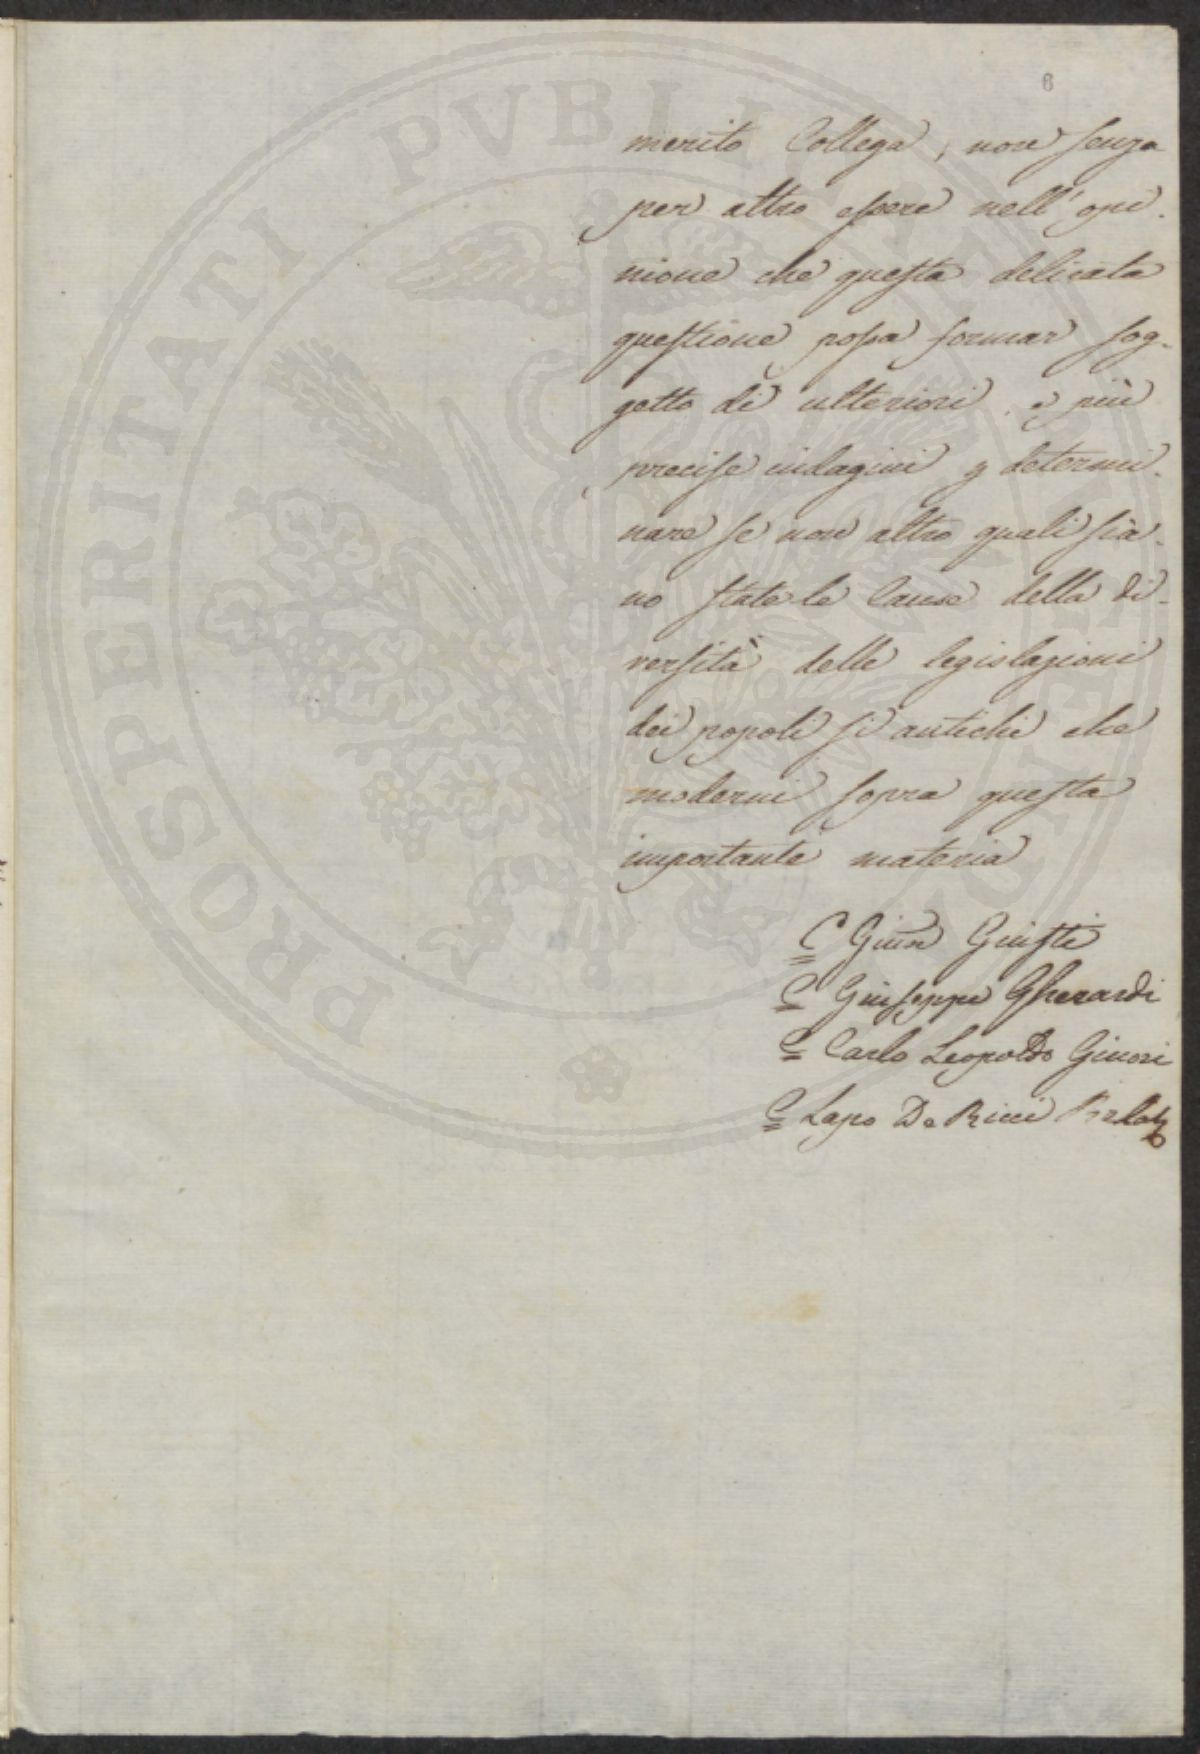 6
merito Collega, non senza
per altro essere nell' opi-
nione che questa delicata
questione possa formar sog-
getto di ulteriori, e più
precise indagini p determi-
nare se non altro quali sia-
no state le Cause della di-
versità delle legislazioni
dei popoli sì antichi che
moderni sopra questa
importante materia
C Giusti
C Giuseppe Gherardi
C Carlo Leopoldo Ginori
C Lapo De Ricci
PROSPERITATI PVBLICAE AVGENDAE